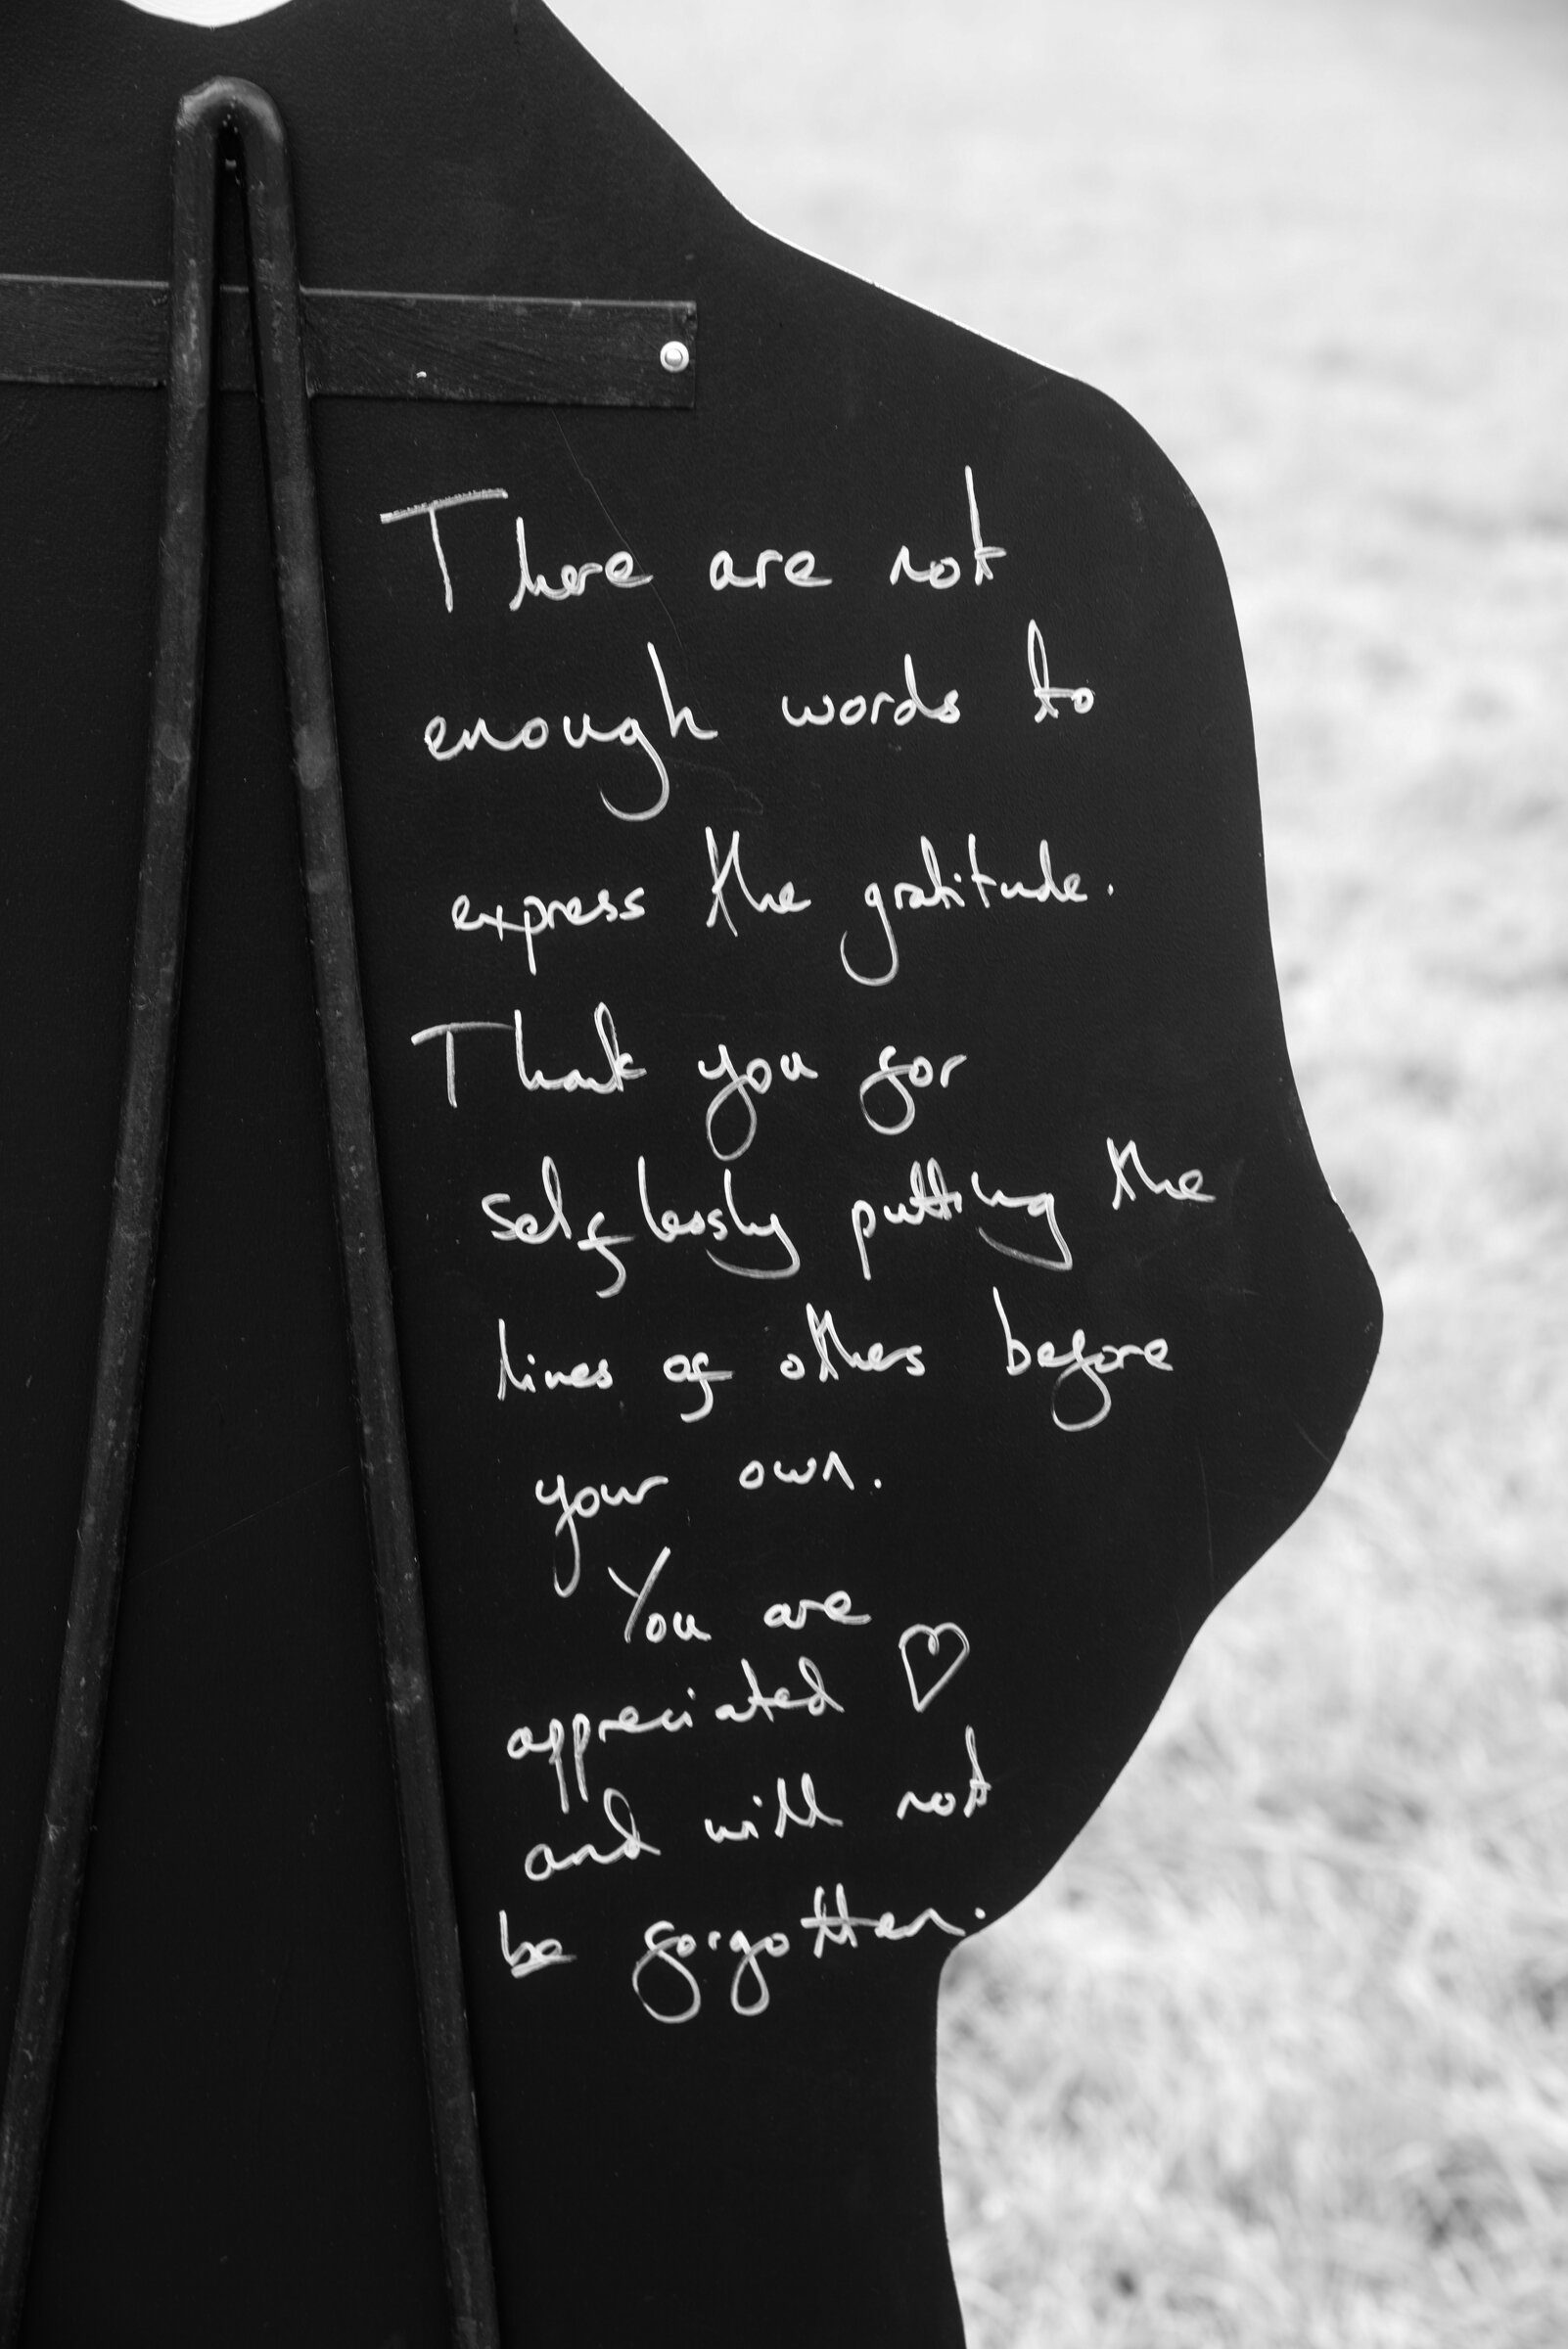 There are not
enough words to
express the gratitude.
Thank you for
selflessly putting the
lives of others before
your own.
You are
appreciated ♡
and will not
be forgotten.